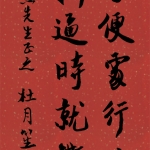 便處行
逼時就
先生正之 杜月笙